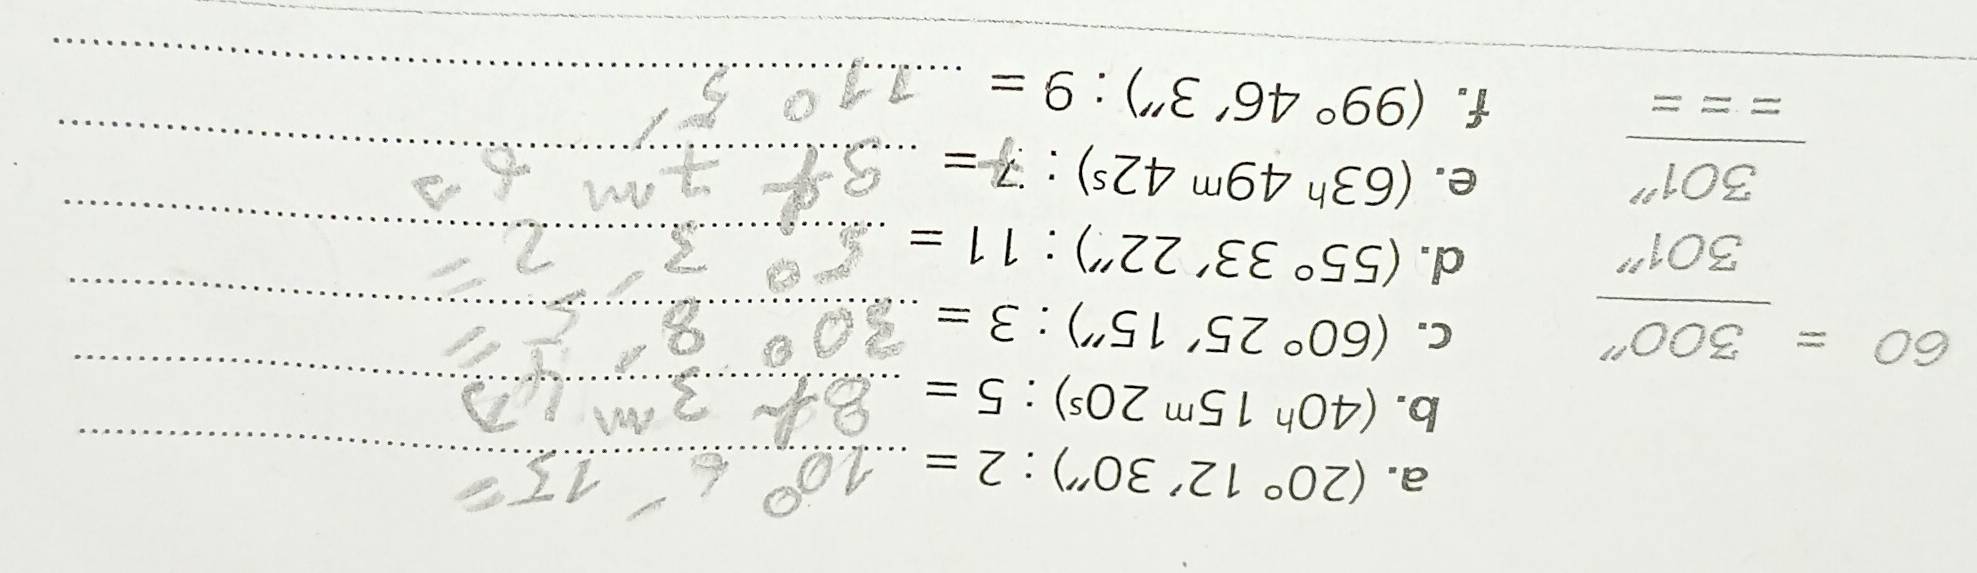 a. (20° 12' 30") : 2 = 10° 6' 15"
b. (40h 15m 20s) : 5 = 8h 3m 4s
60 = 300"
c. (60° 25' 15") : 3 = 30° 8' 5"
301"
d. (55° 33' 22") : 11 = 5° 3' 2"
301"
e. (63h 49m 42s) : 7 = 9h 7m 6s
= = =
f. (99° 46' 3") : 9 = 11° 5'